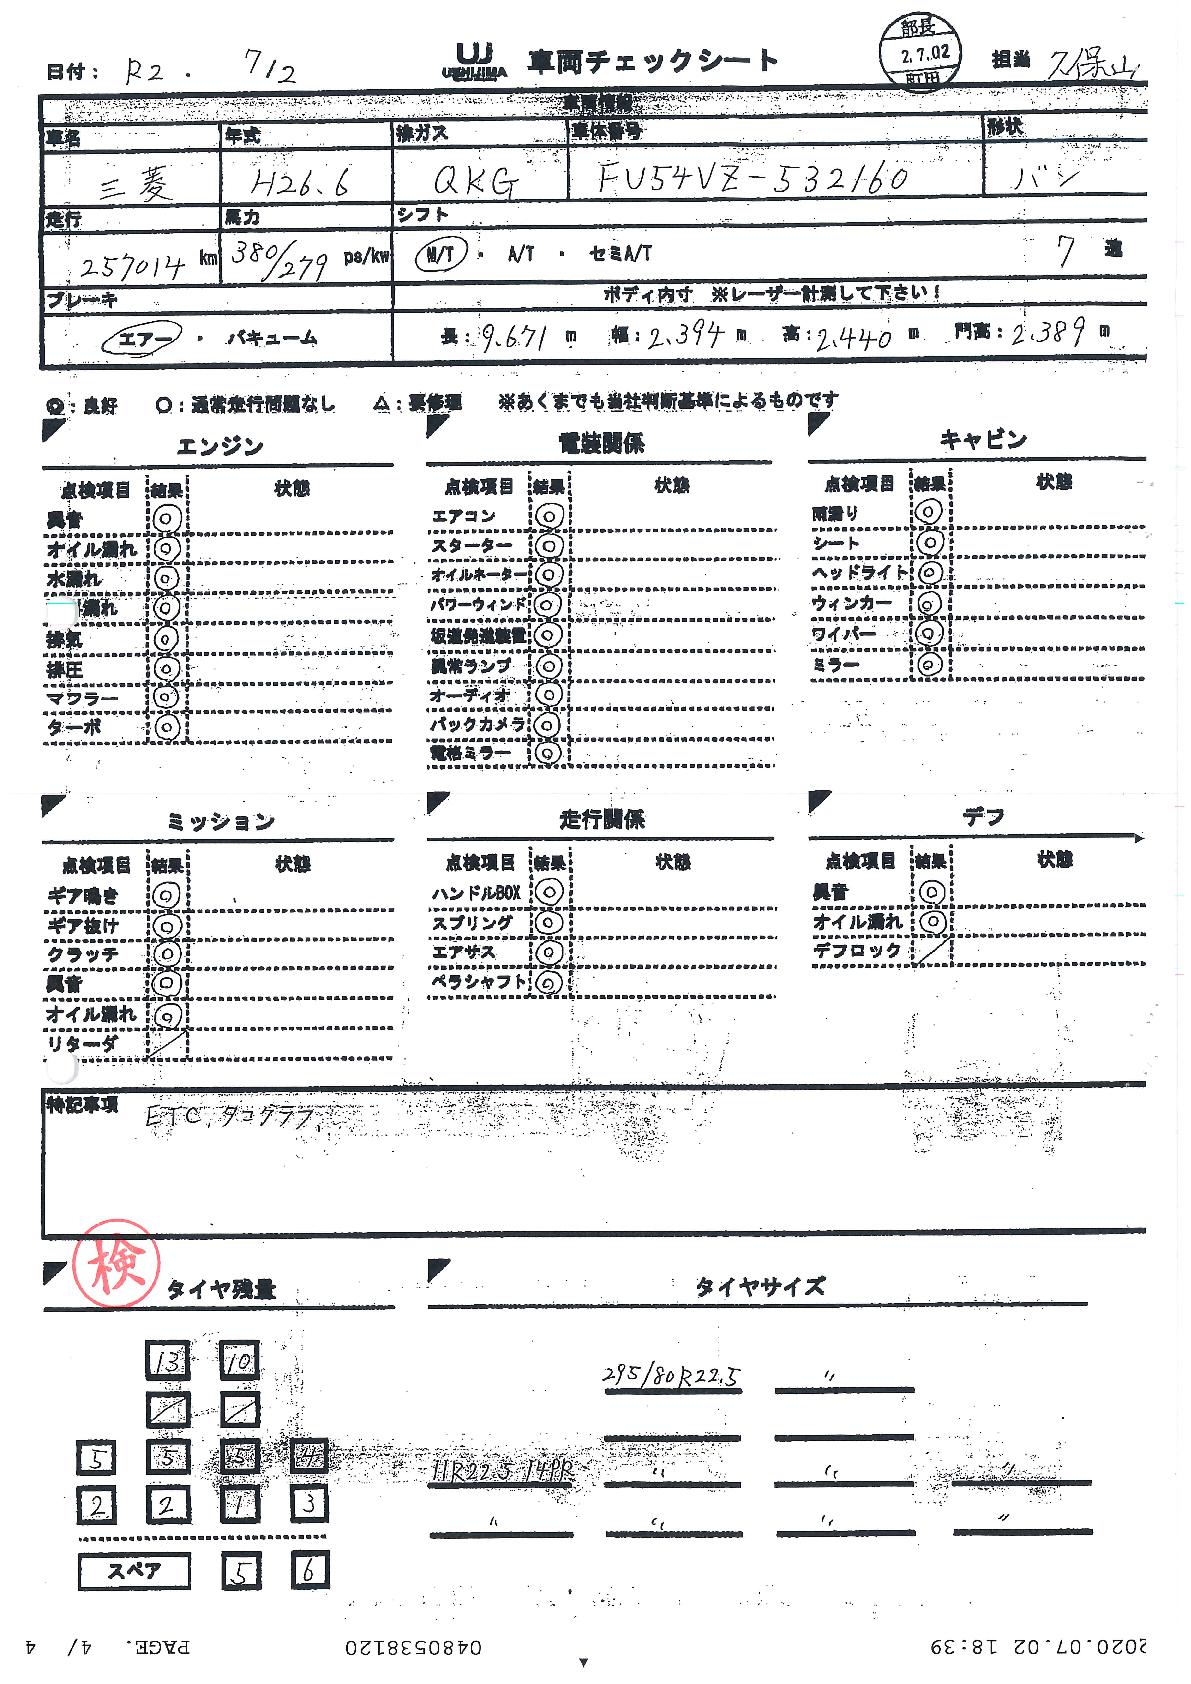 日付： R2． 7/2 UJ USHIJIMA 車両チェックシート 部長 2.7.02 町田 担当 久保山
車両情報
車名 年式 排ガス 車体番号 形状
三菱 H26.6 QKG FU54VZ-532160 バン
走行 馬力 シフト
257014 km 380/279 ps/kw M/T ・ A/T ・ セミA/T 7 速
ブレーキ ボディ内寸 ※レーザー計測して下さい！
エアー ・ バキューム 長：9.671 m 幅：2.394 m 高：2.440 m 門高：2.389 m
◎：良好 ○：通常走行問題なし △：要修理 ※あくまでも当社判断基準によるものです
エンジン
点検項目 結果 状態
異音 ◎
オイル漏れ ◎
水漏れ ◎
漏れ ◎
排気 ◎
排圧 ◎
マフラー ◎
ターボ ◎
電装関係
点検項目 結果 状態
エアコン ◎
スターター ◎
オイルネーター ◎
パワーウィンド ◎
坂道発進装置 ◎
異常ランプ ◎
オーディオ ◎
バックカメラ ◎
電格ミラー ◎
キャビン
点検項目 結果 状態
雨漏り ◎
シート ◎
ヘッドライト ◎
ウィンカー ◎
ワイパー ◎
ミラー ◎
ミッション
点検項目 結果 状態
ギア鳴き ◎
ギア抜け ◎
クラッチ ◎
異音 ◎
オイル漏れ ◎
リターダ ／
走行関係
点検項目 結果 状態
ハンドルBOX ◎
スプリング ◎
エアサス ◎
ペラシャフト ◎
デフ
点検項目 結果 状態
異音 ◎
オイル漏れ ◎
デフロック ／
特記事項 ETC、タコグラフ、
検
タイヤ残量
13 10
／ ／
5 5 5 4
2 2 1 3
スペア 5 6
タイヤサイズ
295/80R22.5 〃
11R22.5 14PR 〃 〃 〃
〃 〃 〃 〃
2020.07.02 18:39 0480538120 PAGE. 4/ 4